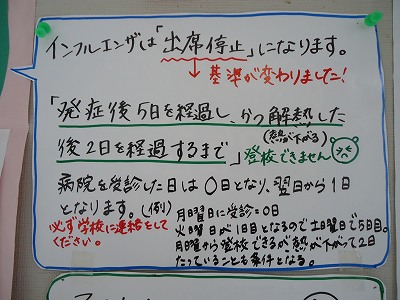 インフルエンザは「出席停止」になります。
基準が変わりました!
「発症後5日を経過し、かつ解熱した
(熱が下がる)
後2日を経過するまで」登校できません
病院を受診した日は0日となり、翌日から1日
となります。(例)
月曜日に受診=0日
火曜日が1日目となるので土曜日で5日目。
月曜から登校できるが熱が下がって2日
たっていることも条件となる。
必ず学校に連絡をして
ください。